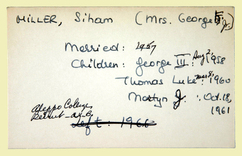 MILLER, Siham (Mrs. George F. Jr.)
Married: 1957
Children: George III Aug 2 1958
Thomas Luke 1960
Martyn J. Oct. 18, 1961
Aleppo College
Left: 1966